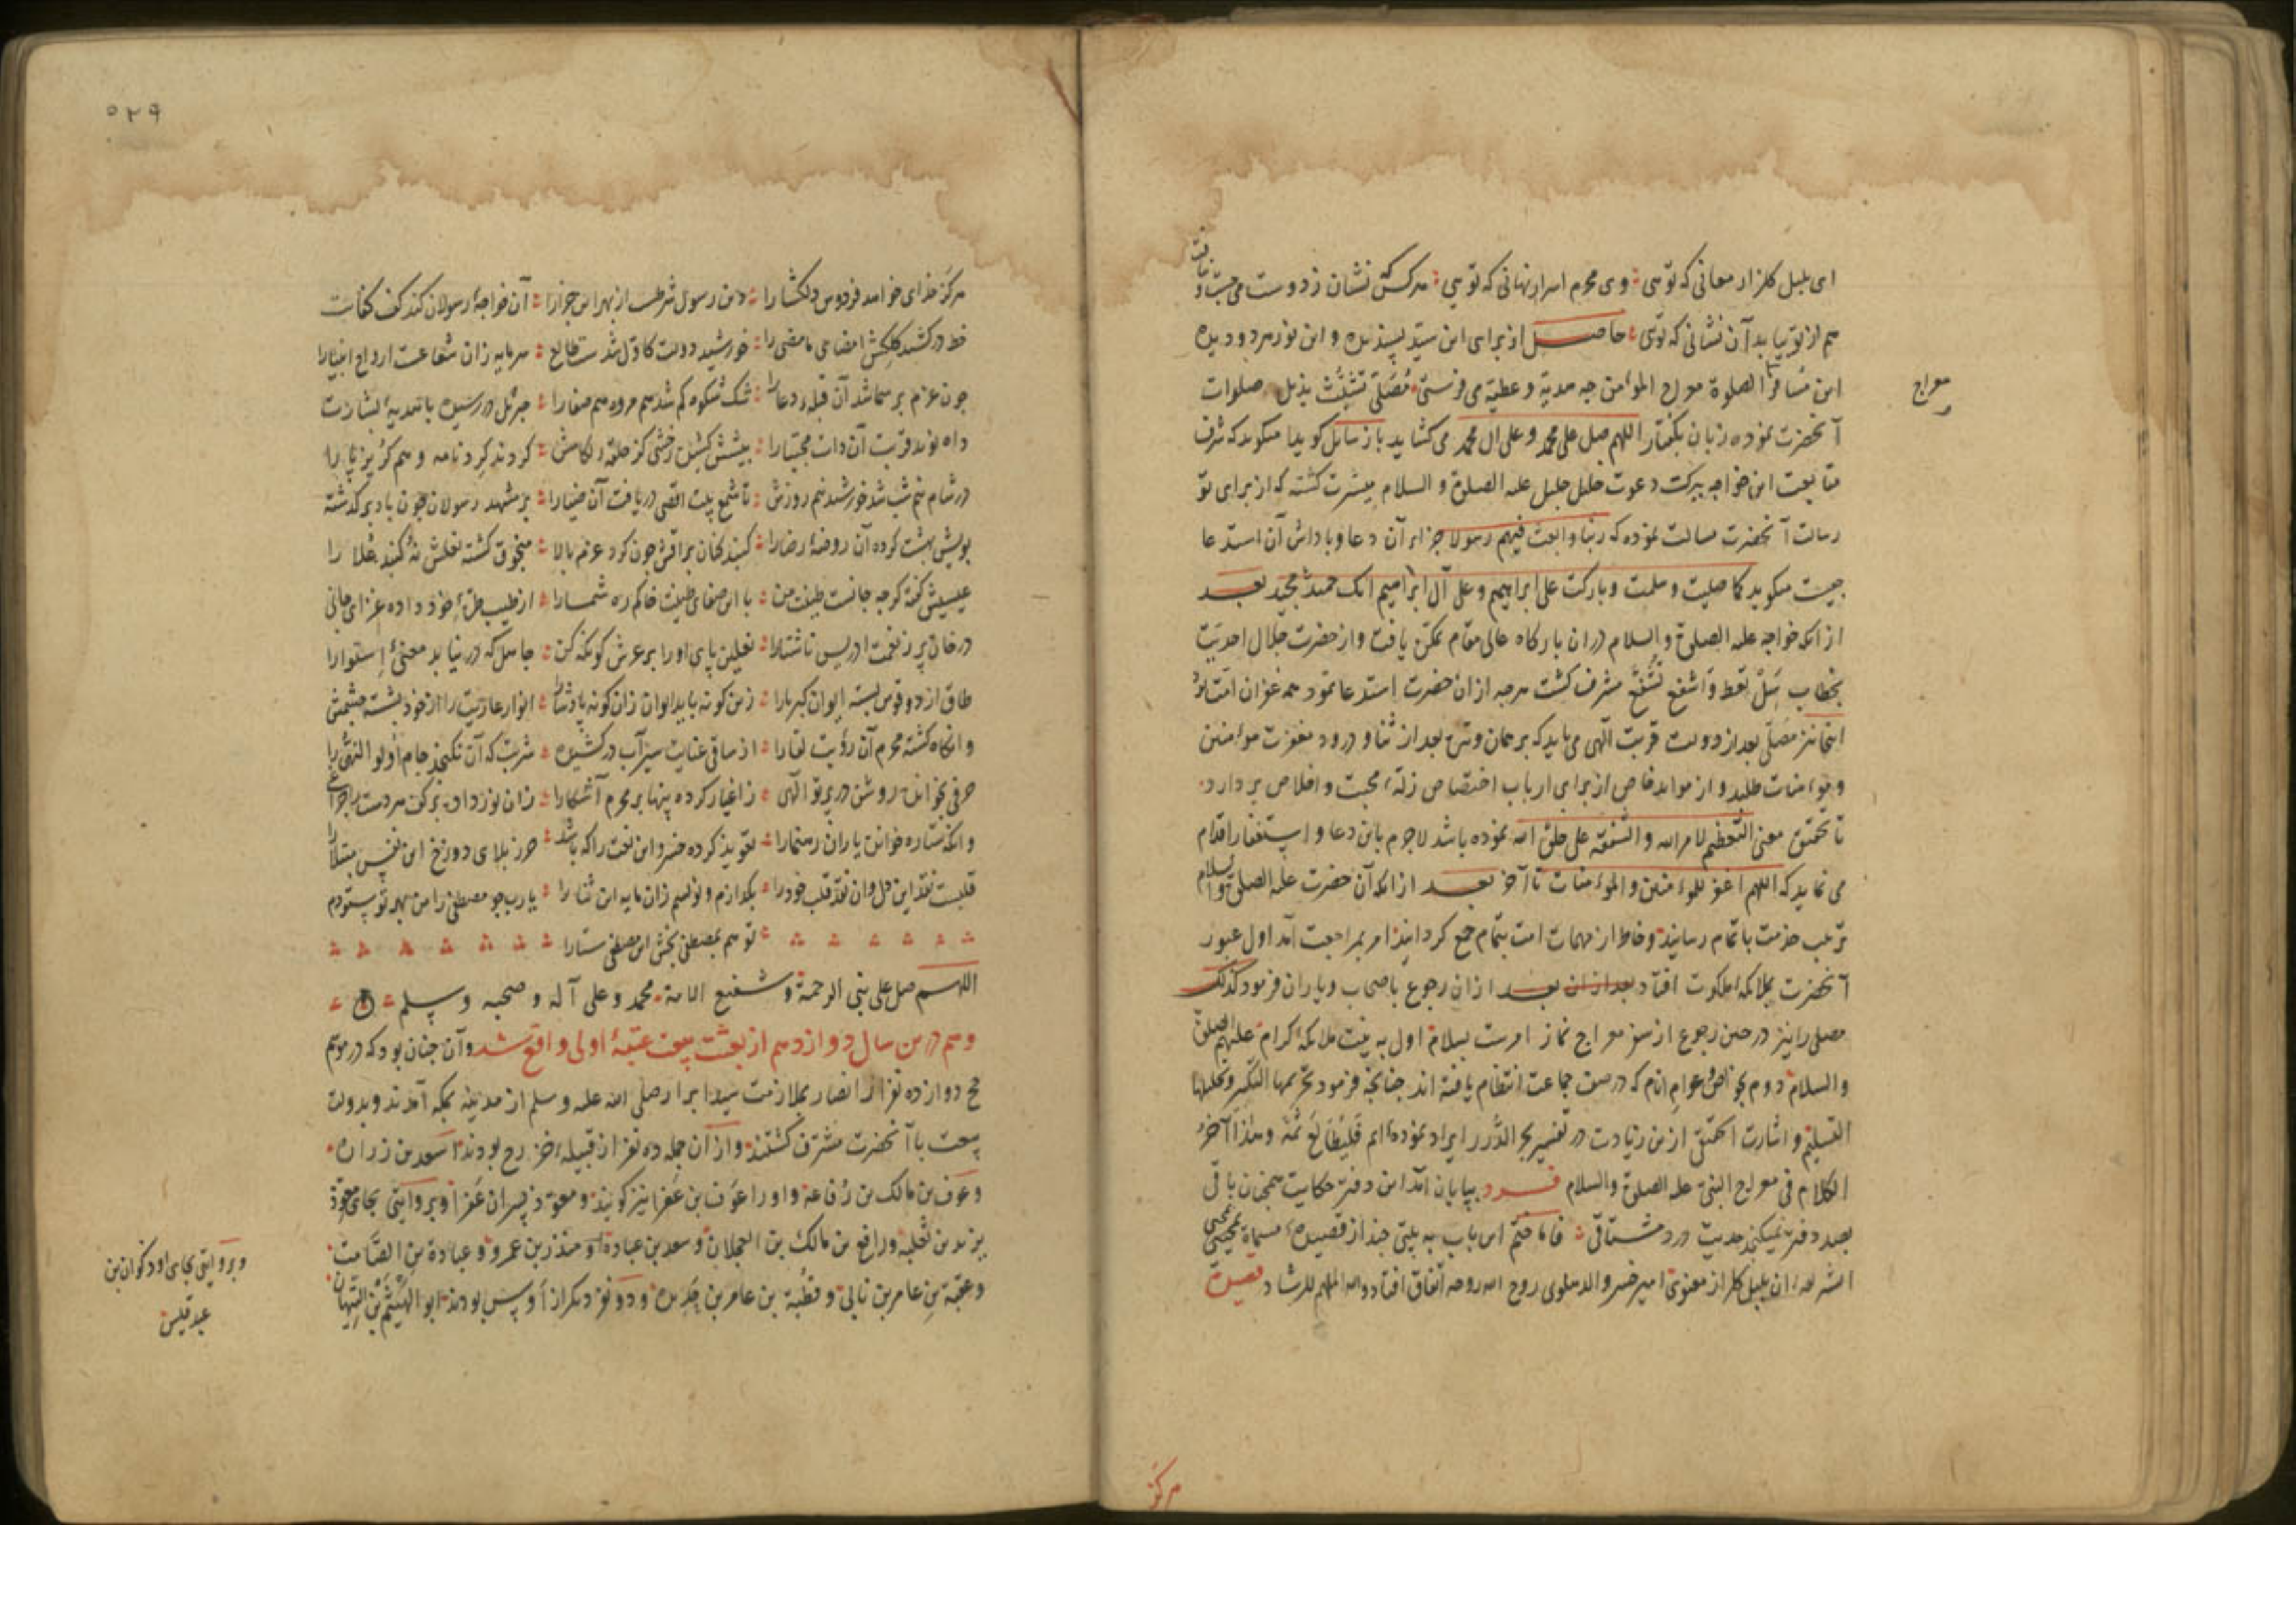 ای بلبل گلزار معانی که توئی وی محرم اسرار نهانی که توئی هرکس که نشان ز دوست می جست نیافت
هم از تو بیابد آن نشانی که توئی حاصل از برای این سید پسندیده و این نور هر دو دیده
این مسافر الصلوة معراج المؤمن چه هدیه و عطیه می فرستی مصلی تشبث بذیل صلوات
معراج
آنحضرت نموده زبان بگفتار اللهم صل علی محمد و علی ال محمد می گشاید باز سایل گوییا میگوید که شرف
متابعت این خواجه ببرکت دعوت خلیل جلیل علیه الصلوة و السلام میسرت گشته که از برای تو
رسالت آنحضرت مسالت نموده که ربنا وابعث فیهم رسولا جزاء آن دعا و پاداش آن استدعا
چیست میگوید کما صلیت و سلمت و بارکت علی ابراهیم و علی آل ابراهیم انک حمید مجید بعد
از آنکه خواجه علیه الصلوة و السلام در آن بارگاه عالی مقام تمکن یافت و از حضرت جلال احدیت
بخطاب سل تعط و اشفع تشفع مشرف گشت هرچه از آن حضرت استدعا نمود همه غفران امت بود
اینجا نیز مصلی بعد از دولت قربت الهی می باید که بر همان وتیره بعد از ثنا و درود مغفرت مؤمنین
و مؤمنات طلبد و از مواید خاص از برای ارباب اختصاص زله محبت و اخلاص بردارد
تا تحقیق معنی التعظیم لامر الله و الشفقة علی خلق الله نموده باشد لاجرم باین دعا و استغفار اقدام
می نماید که اللهم اغفر للمؤمنین و المؤمنات تا آخر بعد از آنکه آن حضرت علیه الصلوة والسلام
ترتیب خدمت باتمام رسانید و خاطر از مهمات امت بتمام جمع گردانید امر بمراجعت آمد اول عبور
آنحضرت بملائکه ملکوت افتاد بعد از آن بعد از آن رجوع باصحاب و یاران فرمود کذلک
مصلی را نیز در حین رجوع از سفر معراج نماز امرست بسلام اول به نیت ملائکه کرام علیهم الصلوة
والسلام دوم بخواص و عوام انام که در صف جماعت انتظام یافته اند چنانچه فرمود تحریمها التکبیر و تحلیلها
التسلیم و اشارت التحقیق ازین زیادت در تفسیر بحر الدرر ایراد نموده ایم فلیطالع ثمه و هذا آخر
الکلام فی معراج النبی علیه الصلوة والسلام فرد بپایان آمد این دفتر حکایت همچنان باقی
بصد دفتر نمیگنجد حدیث درد مشتاقی فاما ختم این باب به بیتی چند از قصیده
ان بلبل گلزار معنوی امیر خسرو الدهلوی روح الله روحه اتفاق افتاد والله الملهم للرشاد قصیده
هرکز
۵۲۹
هرکز خدای خواهد فردوس دلکشا را دین رسول شرطست از بهر این جزا را آن خواجه رسولان کند کف کفایت
خط در کشید کلکش امضای مامضی را خورشید دولت کاول شدست طالع سرمایه زان شفاعت ارواح انبیا را
چون عزم بر سما شد آن قبله دعا را شک شکوه کم شد هم مروه هم صفا را جبرئل در رسیده با تهدیه بشارت
داه نوید قربت آن ذات مجتبا را پیشش کشیده رخشی کز حلقه رکابش کردند
در شام نیم شب شد خورشید نیم روزش تا شمع بیت اقصی دریافت آن ضیا را بر مشهد رسولان چون باد برگذشته
بویش بهشت کرده آن روضه رضا را گنبد کنان براقش چون کرد عزم بالا منجوق گشته نعلش نه گنبد علا را
عیسیش گفته گرچه جانست طینت من با این صفای طینت خاکم ره شما را از طیب خلق خود داده غذای جانی
در خان پر ز نعمت ادریس ناشتا را نعلین پای او را بر عرش گو نگه کن جاهل که در نیابد معنی استوا را
طاق از دو قوس بسته ایوان کبریا را زین گونه باید ایوان زان گونه پادشا را انوار عاریت را از خود بشسته چشمش
وانگاه گشته محرم آن رؤیت لقا را از ساقی عنایت سیر آب در کشیده شربت که آن نگنجد جام اولو النهی را
حرفی بخوانده روشن در پرتو آلهی ز اغیار کرده پنهان بر محرم آشکارا زان نور داده بر کف
وانکه ستاره خوانده یاران رهنما را تعویذ کرده خسرو این نعت را که باشد حرز بلای دوزخ این نفس مبتلا را
قلبست نقد این دل وان نقد قلب خود را بگدازم و نویسم زان مایه این ثنا را یارب چو مصطفی را من بهر تو ستودم
تو هم بمصطفی بخش این مصطفی ستا را
اللهم صل علی نبی الرحمة و شفیع الامة محمد و علی آله و صحبه و سلم
و هم درین سال دوازدهم از بعثت بیعت عقبه اولی واقع شد و آن چنان بود که در موسم
حج دوازده نفر از انصار بملازمت سید ابرار صلی الله علیه و سلم از مدینه بمکه آمدند و بدولت
بیعت با آنحضرت مشرف گشتند و از آن جمله ده نفر از قبیله خزرج بودند اسعد بن زراره
و عوف بن مالک بن رفاعة و او را عوف بن عفرا نیز گویند و معوذ پسران عفرا و بروایتی بجای معوذ
یزید بن ثعلبه و رافع بن مالک بن العجلان و سعد بن عبادة او منذر بن عمرو و عبادة بن الصامت
و عقبة بن عامر بن نابی و قطبة بن عامر بن حدیده و دو نفر دیگر از اوس بودند ابو الهیثم بن التیهان
و بروایتی بجای او ذکوان بن
عبد قیس